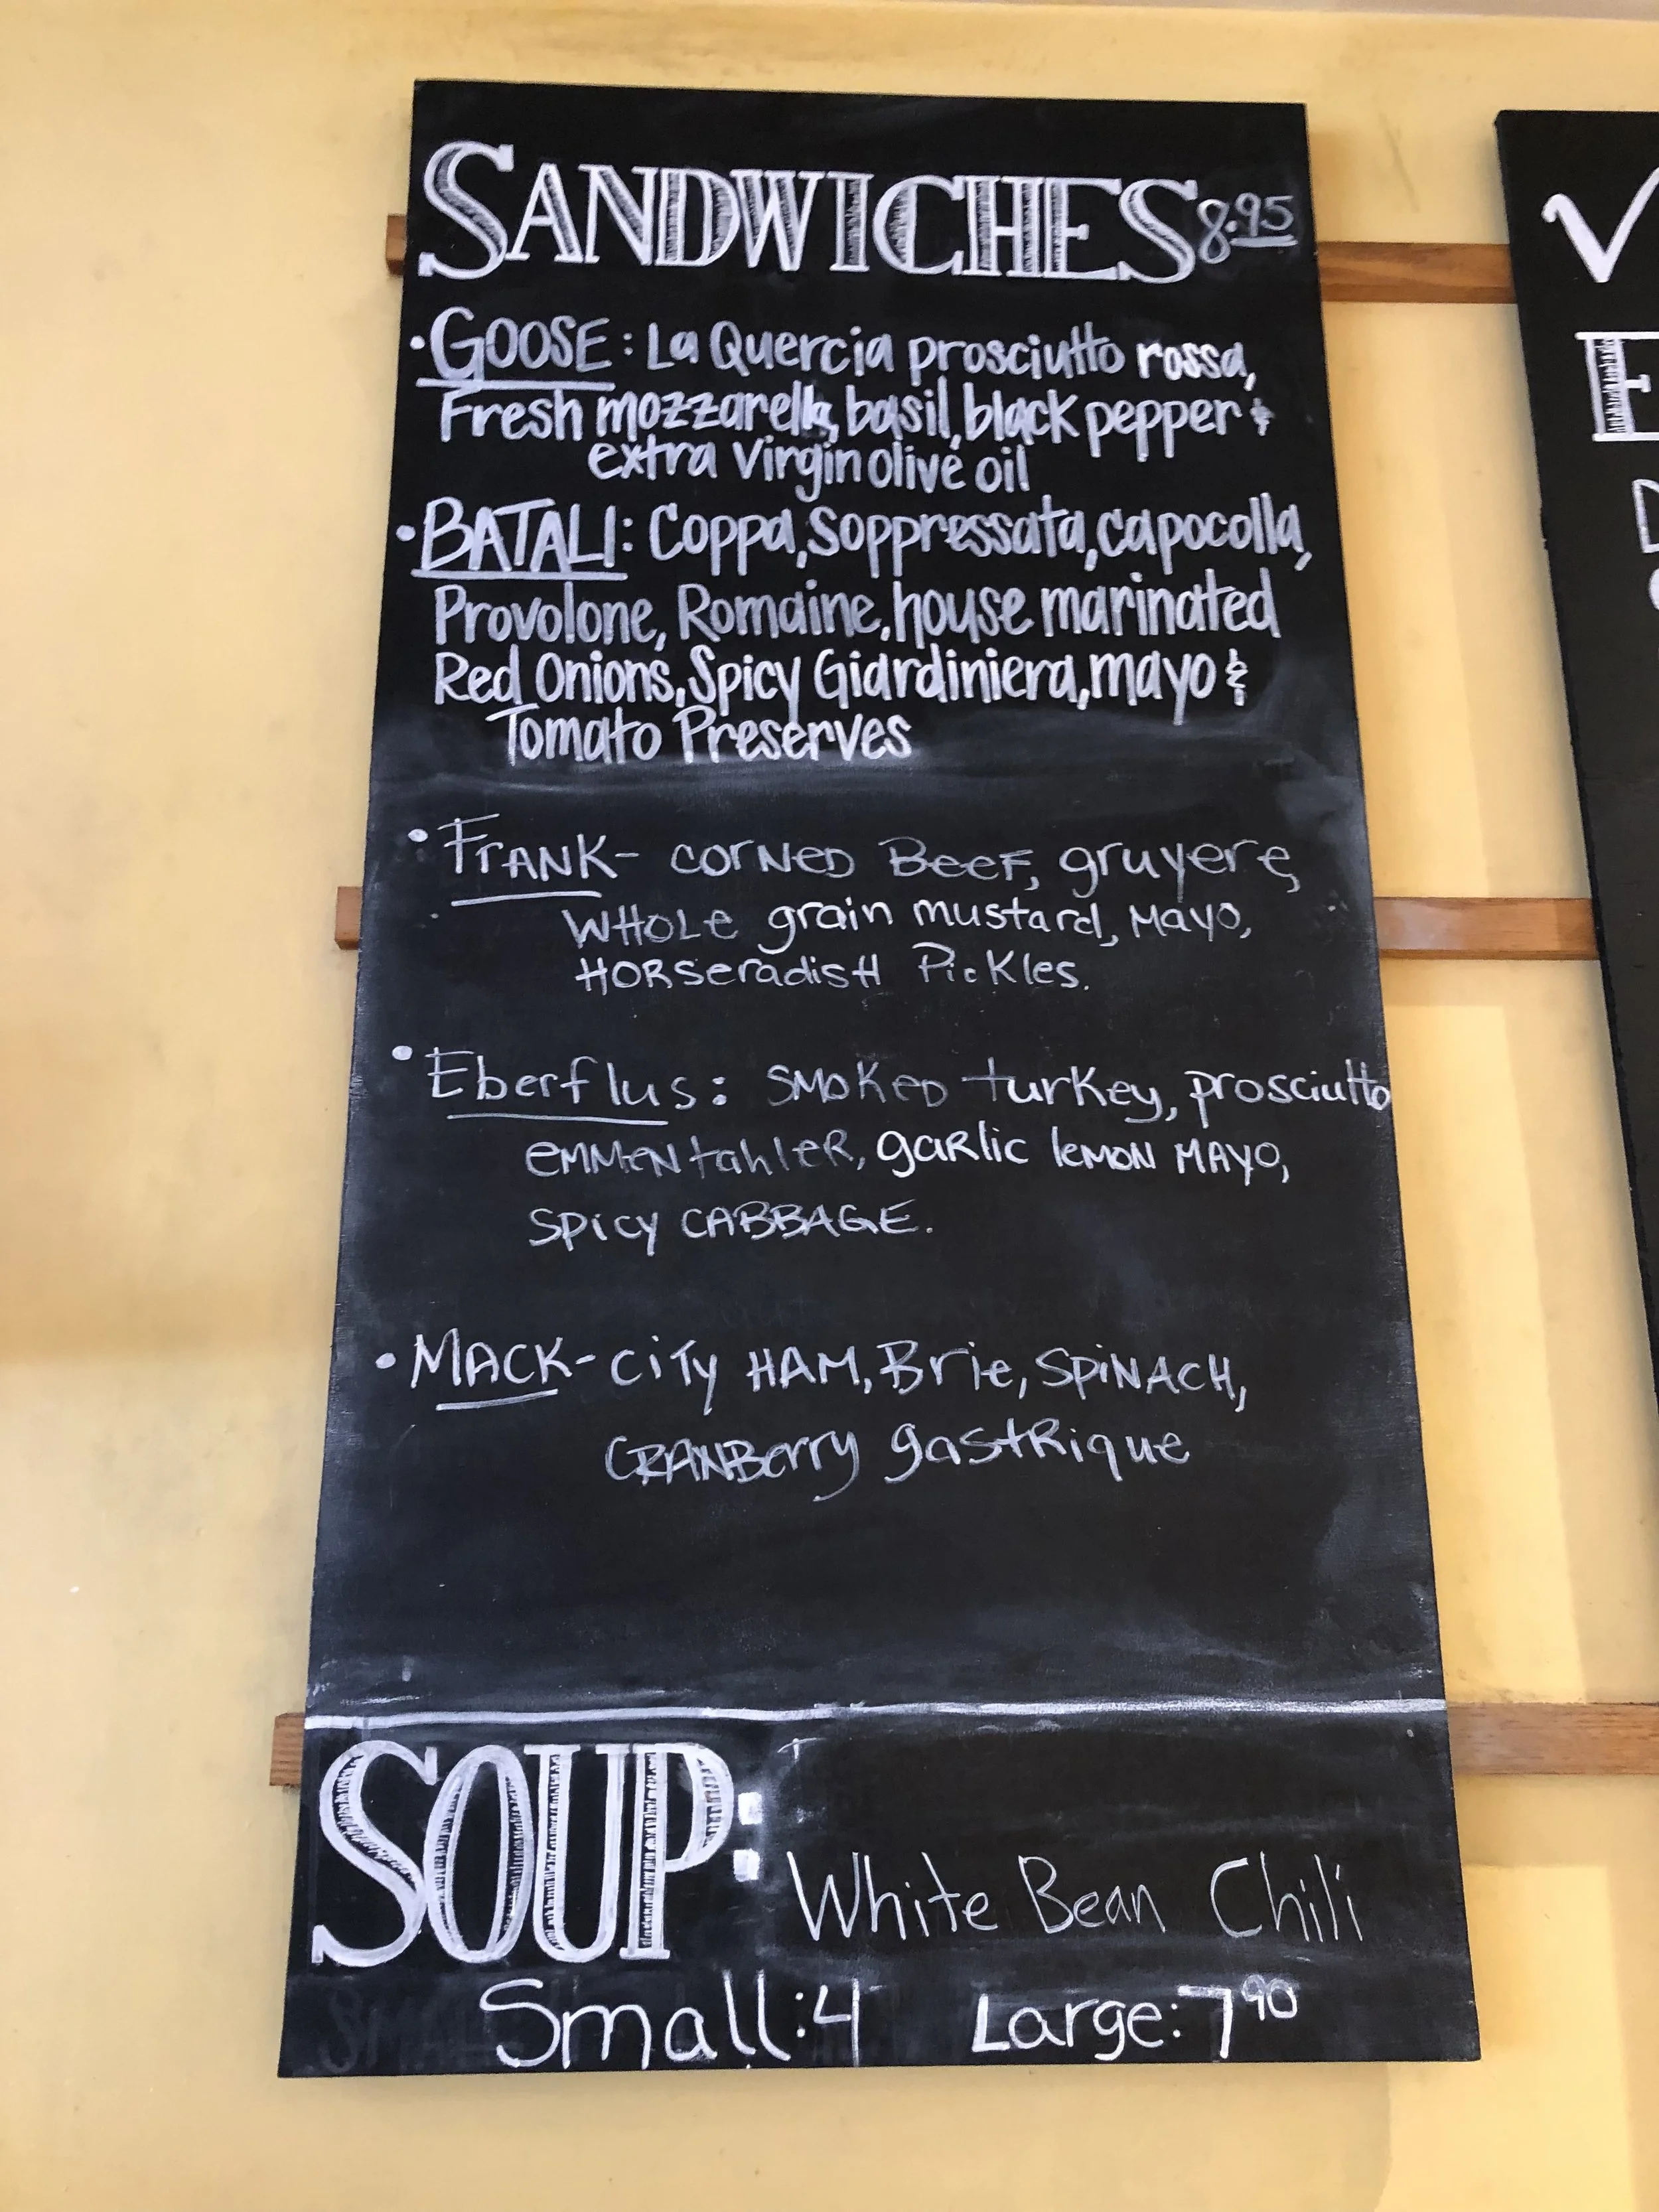 SANDWICHES 8.95
• GOOSE: La Quercia prosciutto rossa,
Fresh mozzarella, basil, black pepper &
extra Virgin olive oil
• BATALI: Coppa, Soppressata, capocolla,
Provolone, Romaine, house marinated
Red Onions, Spicy Giardiniera, mayo &
Tomato Preserves
• FrANK- corNeD BeeF, gruyere,
WHOLe grain mustard, MAyo,
HORSeradisH PicKles.
• Eberflus: SMoKeD turKey, prosciutto
eMMeNtahleR, gaRlic leMoN MAyo,
SPicy CABBAGE.
• MACK- City HAM, Brie, SPiNACH,
CRANBerry gastRique
SOUP: White Bean Chili
Small: 4 Large: 7 90
V
E
D